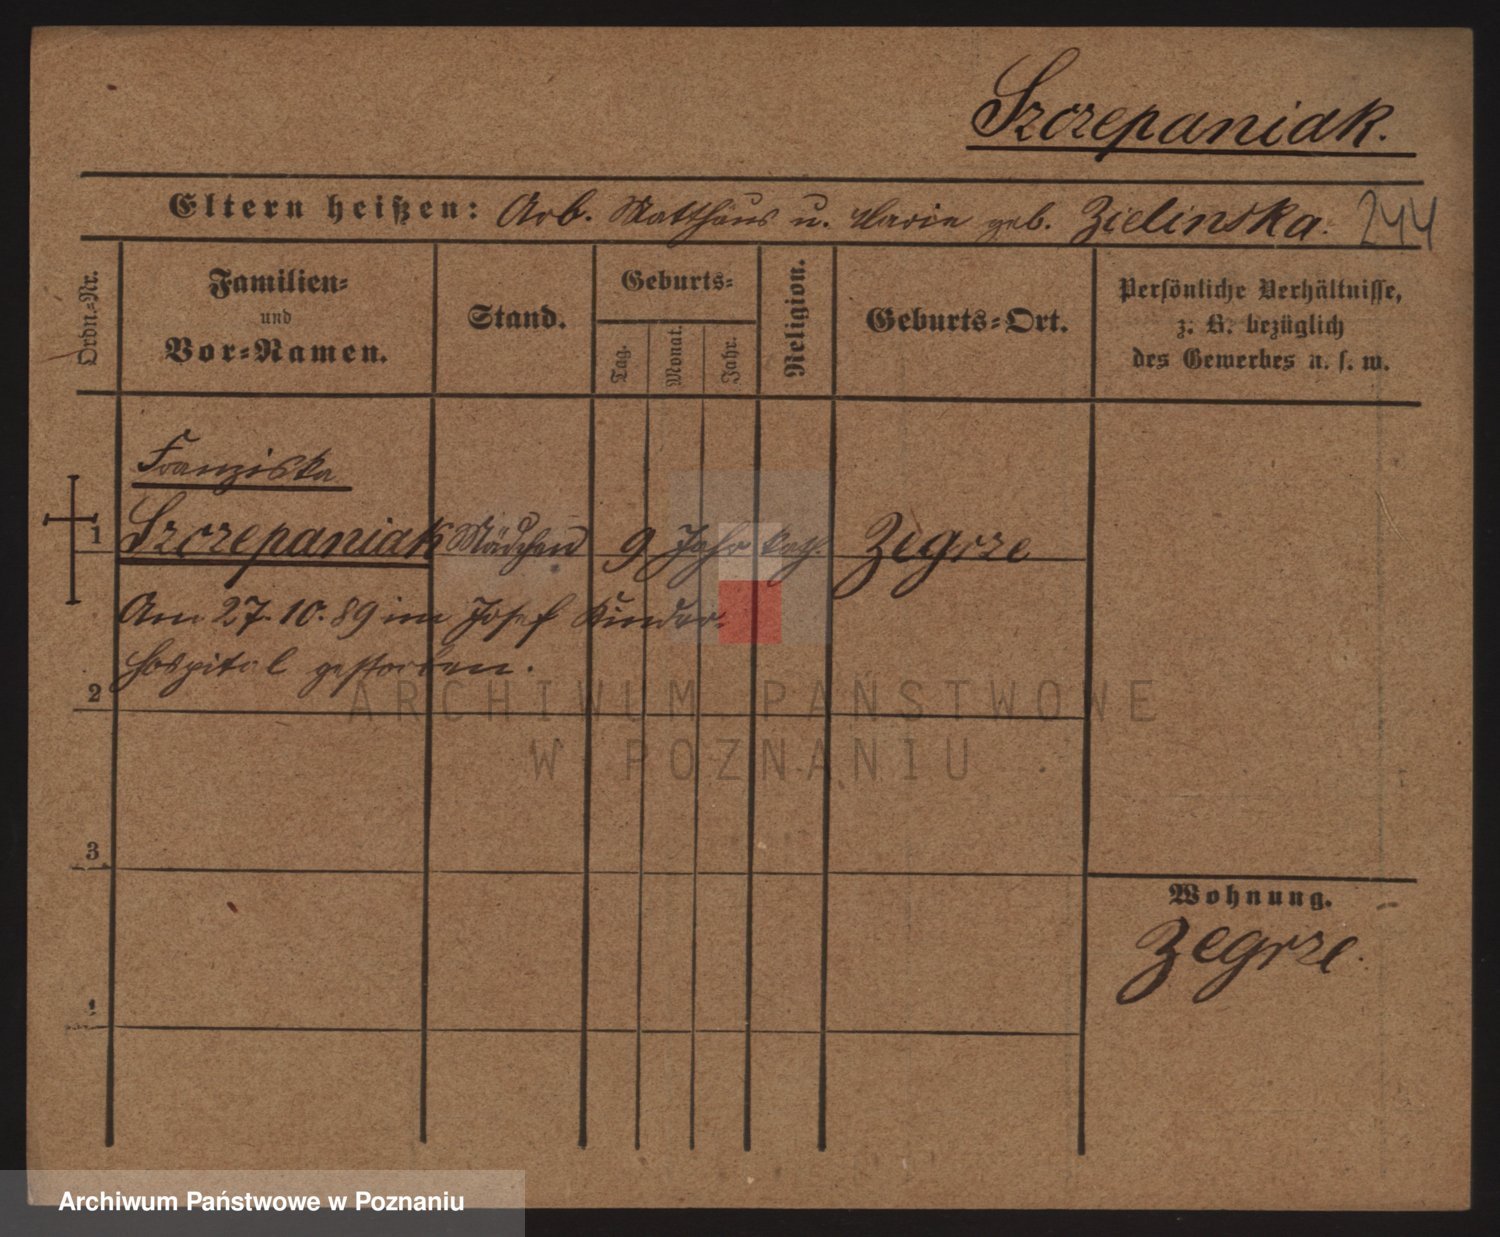 Szczepaniak.
Eltern heißen: Arb. Matthäus u. Marie geb. Zielinska. 244
Ordn.-Nr.
Familien-
und
Vor-Namen.
Stand.
Geburts-
Tag.
Monat.
Jahr.
Religion.
Geburts-Ort.
Persönliche Verhältnisse,
z. B. bezüglich
des Gewerbes u. s. w.
Franziska
1 Szczepaniak Mädchen 9 Jahr kath. Zegrze
Am 27.10.89 im Josef Kinder-
hospital gestorben.
2
ARCHIWUM PAŃSTWOWE
W POZNANIU
3
Wohnung.
Zegrze.
4
Archiwum Państwowe w Poznaniu